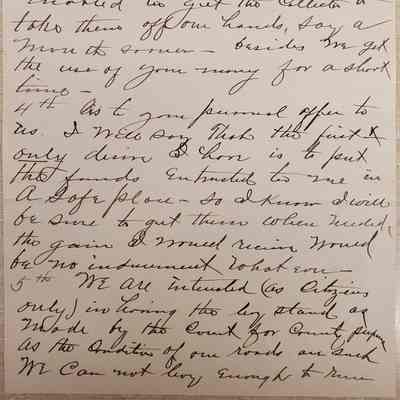 enabled to get the Collector to
take them off our hands, say a
month sooner — besides we get
the use of your money for a short
time —
4th As to your personal offer to
us. I will say that the first &
only desire I have is to put
the funds entrusted to me in
A Safe place — so I know I will
be sure to get them when needed,
the gain I would receive would
be no inducement whatever —
5th We are interested (as Citizens
only) in having the levy stand as
made by the Court for County purposes
As the Condition of our roads are such
We Can not levy enough to run